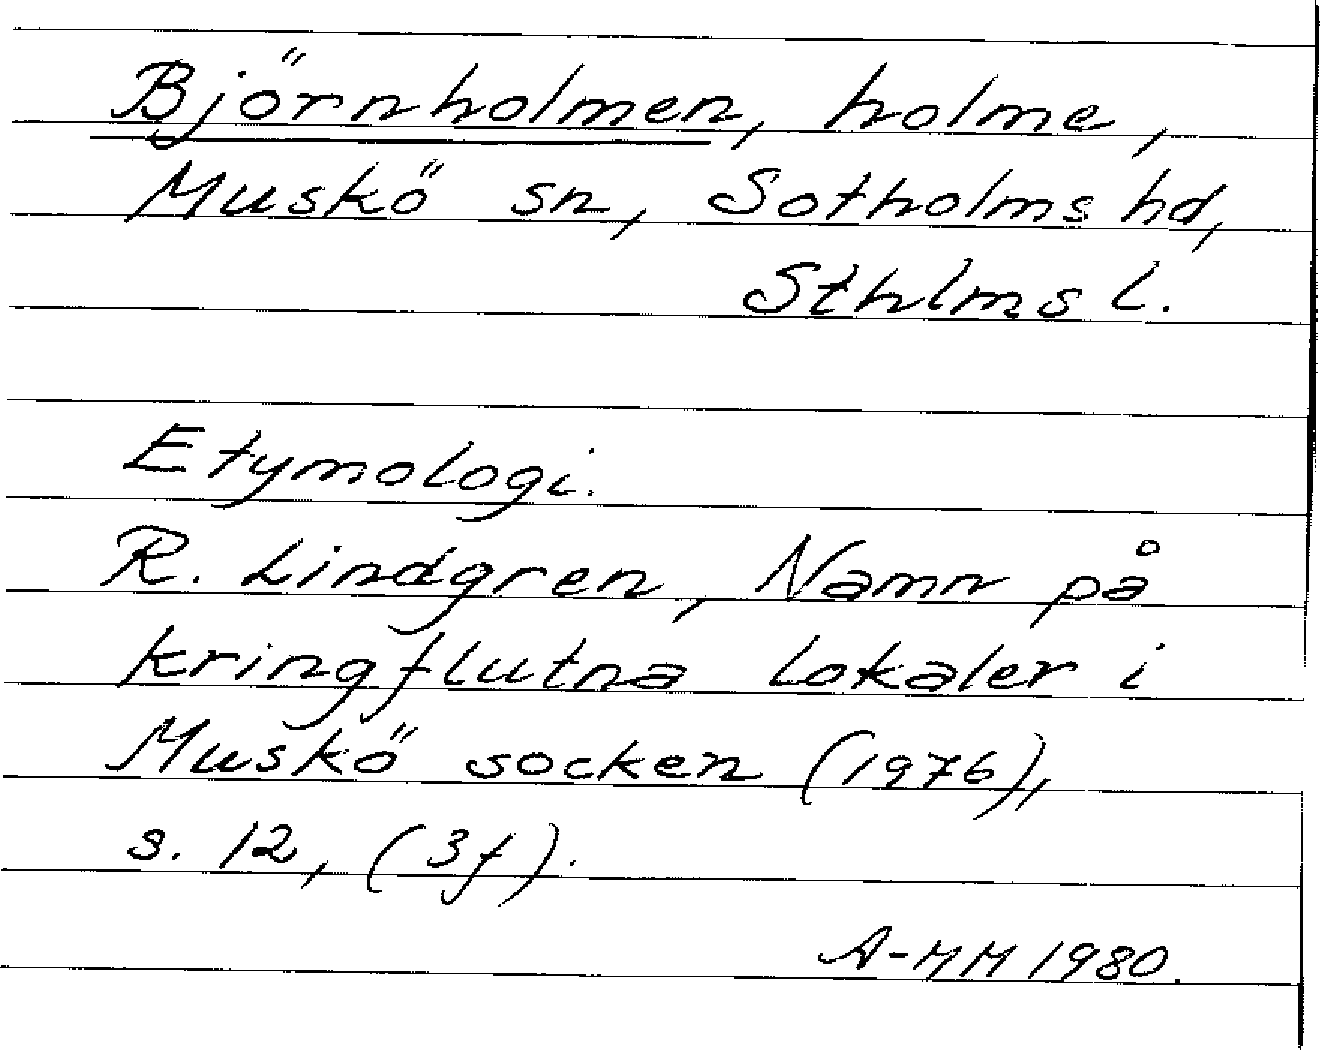 Björnholmen, holme,
Muskö sn, Sotholms hd,
Sthlms l.
Etymologi.
R. Lindgren, Namn på
kringflutna lokaler i
Muskö socken (1976),
s. 12, (3f).
A-MM 1980.